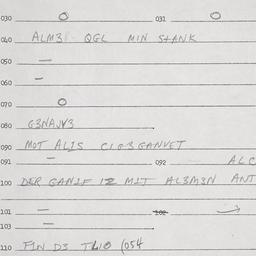 030 O 031 O
040 ALM3 QGL MIN STANK
050 —
060 —
070 O
080 G3NAJV3
090 MOT ALIS C1G3GANVET
091 — 092 ALC
100 DER GANIF IZ MIT AL3M3N ANT
101 — 102 →
103 —
110 FIN D3 TLIO (054